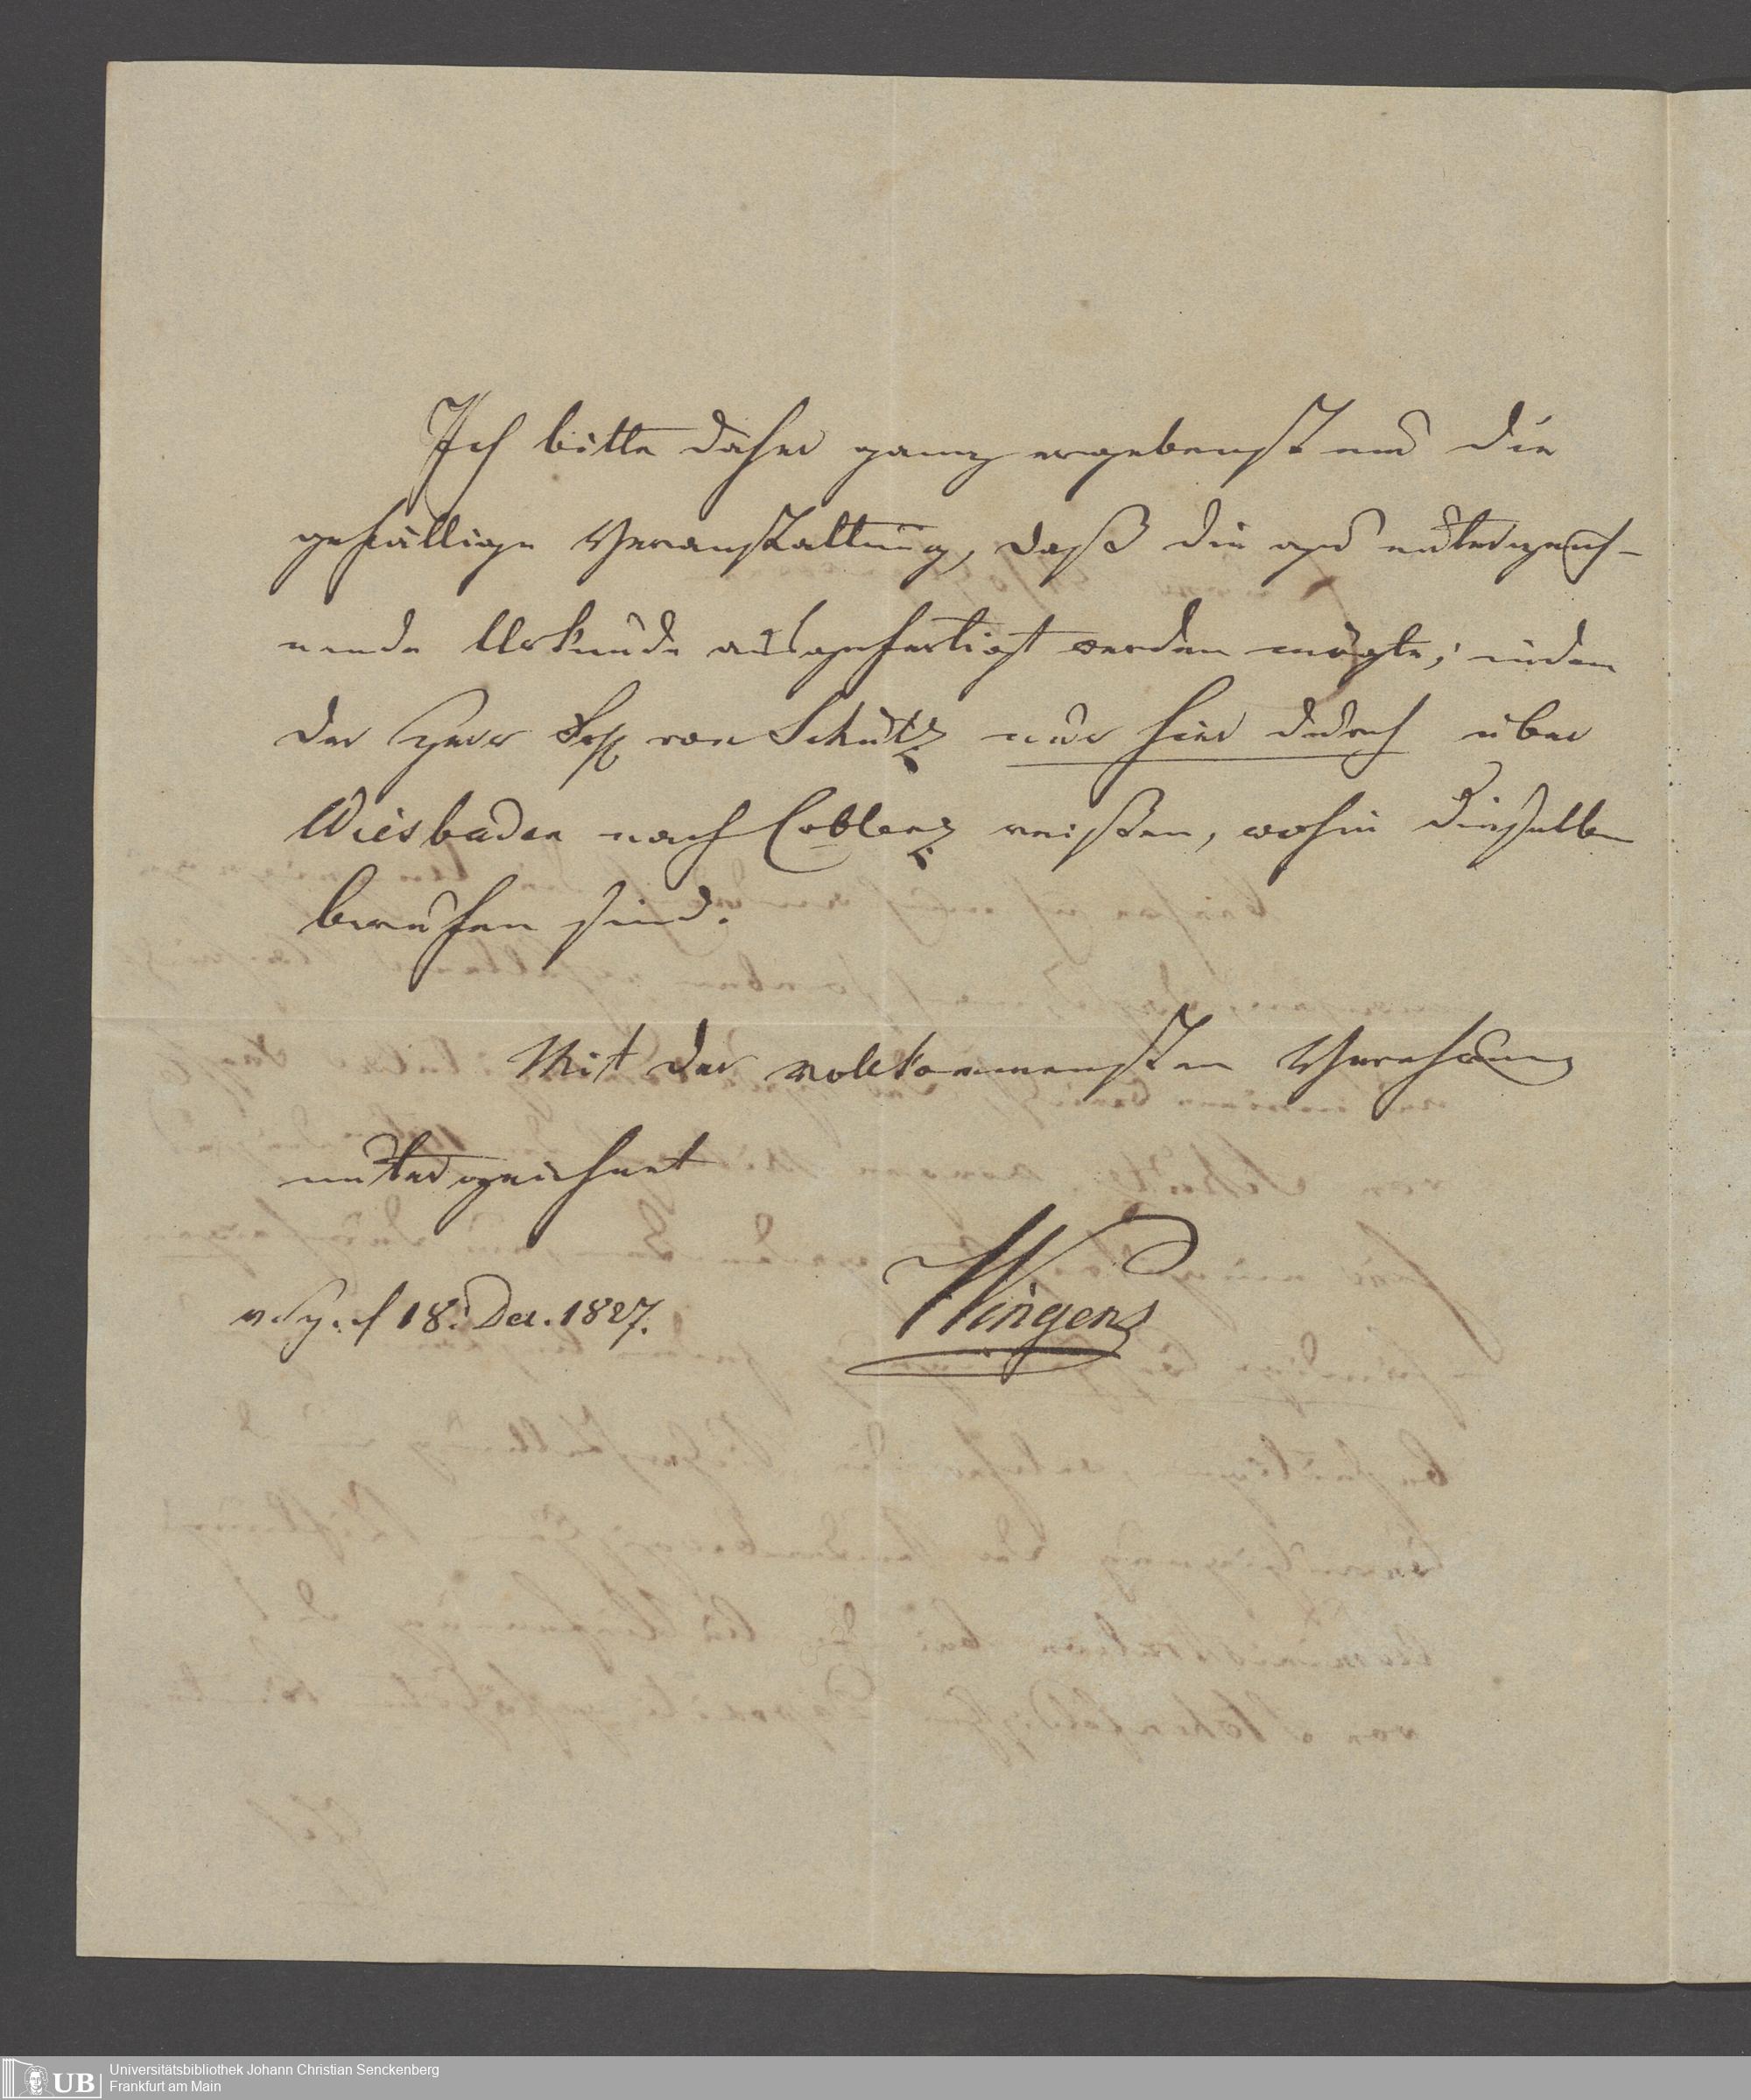 Ich bitte daher ganz ergebenst um die
gefällige Veranstaltung, daß die zu unterzeich-
nende Urkunde ausgefertigt werden mögte; indem
der Herr von Schütz nur hier durch über
Wiesbaden nach Coblenz reißen, wohin dieselben
berufen sind.
Mit der vollkommensten Verehrung
unterzeichnet
Wingens
18. Dec. 1827.
UB Universitätsbibliothek Johann Christian Senckenberg
Frankfurt am Main